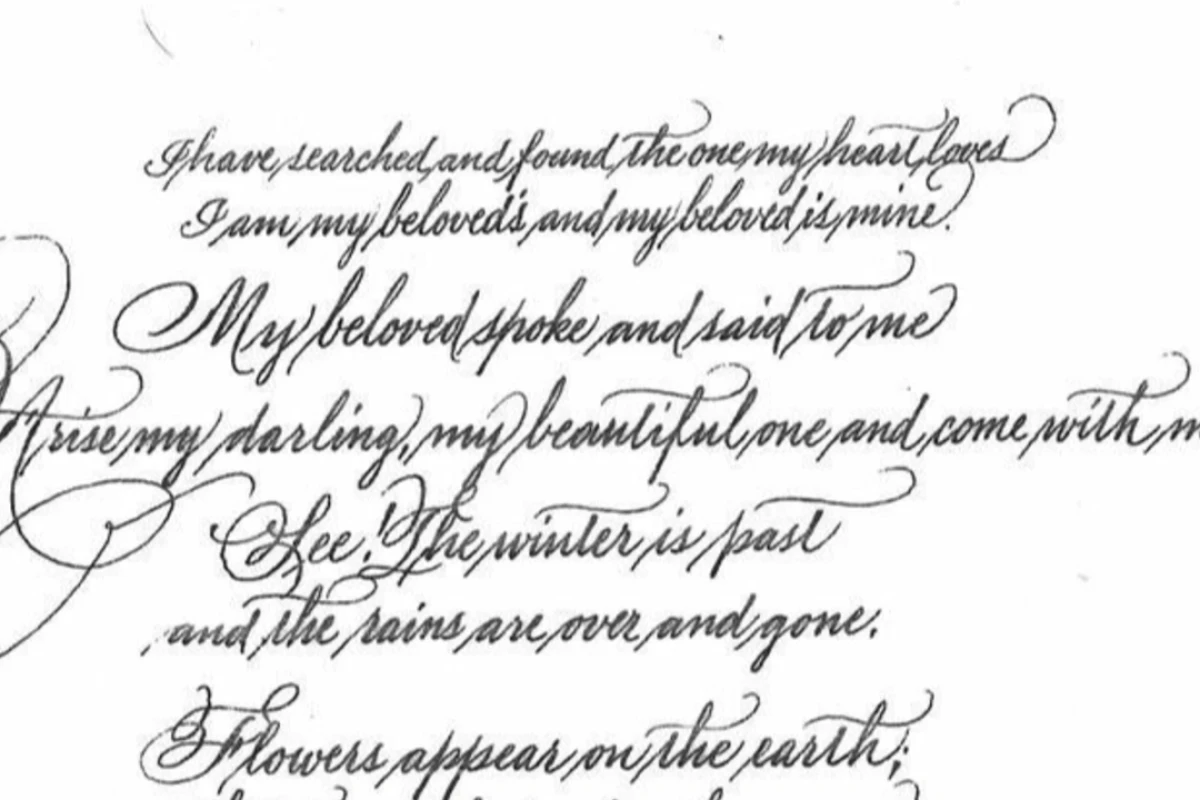 I have searched and found the one my heart loves
I am my beloved's and my beloved is mine.
My beloved spoke and said to me
Arise my darling, my beautiful one and come with
See! The winter is past
and the rains are over and gone.
Flowers appear on the earth;